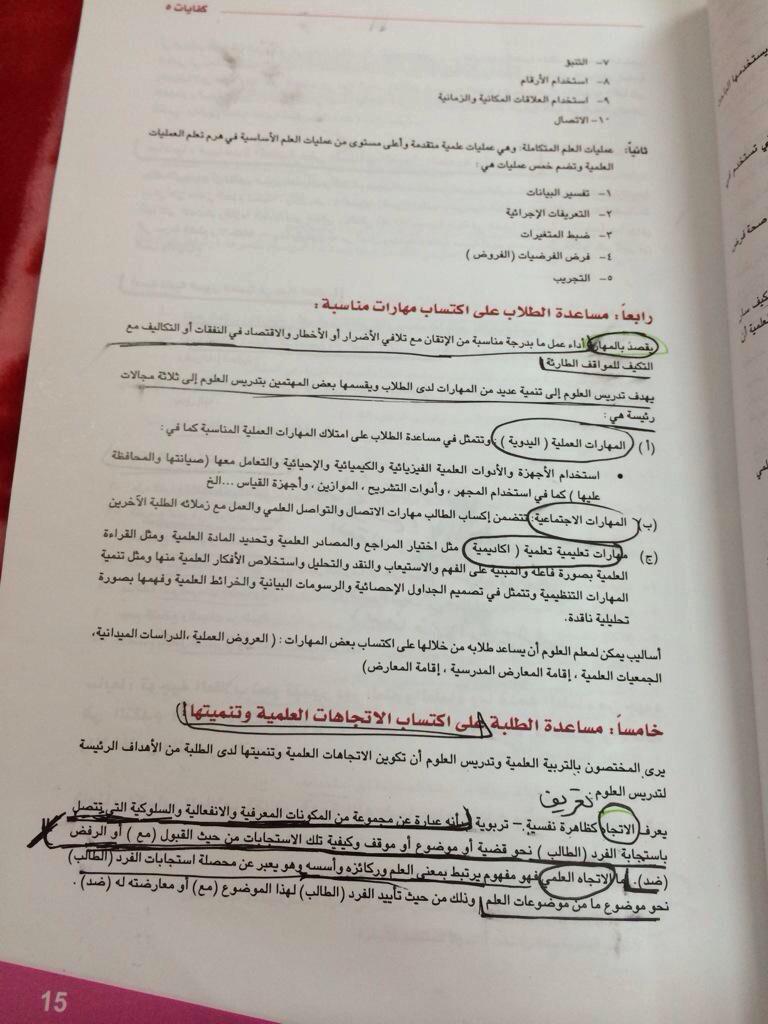 كفايات ٥
٧- التنبؤ
٨- استخدام الأرقام
٩- استخدام العلاقات المكانية والزمانية
١٠- الاتصال
ثانياً: عمليات العلم المتكاملة: وهي عمليات علمية متقدمة وأعلى مستوى من عمليات العلم الأساسية في هرم تعلم العمليات
العلمية وتضم خمس عمليات هي :
١- تفسير البيانات
٢- التعريفات الإجرائية
٣- ضبط المتغيرات
٤- فرض الفرضيات (الفروض )
٥- التجريب
رابعاً: مساعدة الطلاب على اكتساب مهارات مناسبة :
يقصد بالمهارة أداء عمل ما بدرجة مناسبة من الإتقان مع تلافي الأضرار أو الأخطار والاقتصاد في النفقات أو التكاليف مع
التكيف للمواقف الطارئة
يهدف تدريس العلوم إلى تنمية عديد من المهارات لدى الطلاب ويقسمها بعض المهتمين بتدريس العلوم إلى ثلاثة مجالات
رئيسة هي :
(أ) المهارات العملية ( اليدوية ) : وتتمثل في مساعدة الطلاب على امتلاك المهارات العملية المناسبة كما في :
• استخدام الأجهزة والأدوات العلمية الفيزيائية والكيميائية والإحيائية والتعامل معها (صيانتها والمحافظة
عليها ) كما في استخدام المجهر ، وأدوات التشريح ، الموازين ، وأجهزة القياس ...الخ
(ب) المهارات الاجتماعية: تتضمن إكساب الطالب مهارات الاتصال والتواصل العلمي والعمل مع زملائه الطلبة الآخرين
(ج) مهارات تعليمية تعلمية ( اكاديمية ) مثل اختيار المراجع والمصادر العلمية وتحديد المادة العلمية ومثل القراءة
العلمية بصورة فاعلة والمبنية على الفهم والاستيعاب والنقد والتحليل واستخلاص الأفكار العلمية منها ومثل تنمية
المهارات التنظيمية وتتمثل في تصميم الجداول الإحصائية والرسومات البيانية والخرائط العلمية وفهمها بصورة
تحليلية ناقدة.
أساليب يمكن لمعلم العلوم أن يساعد طلابه من خلالها على اكتساب بعض المهارات : ( العروض العملية ،الدراسات الميدانية،
الجمعيات العلمية ، إقامة المعارض المدرسية ، إقامة المعارض)
خامساً: مساعدة الطلبة على اكتساب الاتجاهات العلمية وتنميتها :
يرى المختصون بالتربية العلمية وتدريس العلوم أن تكوين الاتجاهات العلمية وتنميتها لدى الطلبة من الأهداف الرئيسة
لتدريس العلوم.
تعريف
يعرف الاتجاه كظاهرة نفسية – تربوية بأنه عبارة عن مجموعة من المكونات المعرفية والانفعالية والسلوكية التي تتصل
باستجابة الفرد (الطالب ) نحو قضية أو موضوع أو موقف وكيفية تلك الاستجابات من حيث القبول (مع ) أو الرفض
(ضد). أما الاتجاه العلمي فهو مفهوم يرتبط بمعنى العلم وركائزه وأسسه وهو يعبر عن محصلة استجابات الفرد (الطالب)
نحو موضوع ما من موضوعات العلم وذلك من حيث تأييد الفرد (الطالب) لهذا الموضوع (مع) أو معارضته له (ضد) .
15